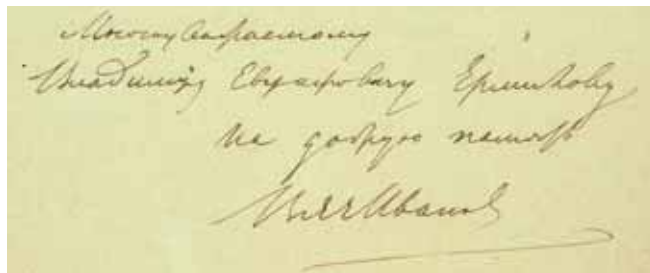 Многоуважаемому
Владиміру Евграфовичу Ермилову
на добрую память
Иванов